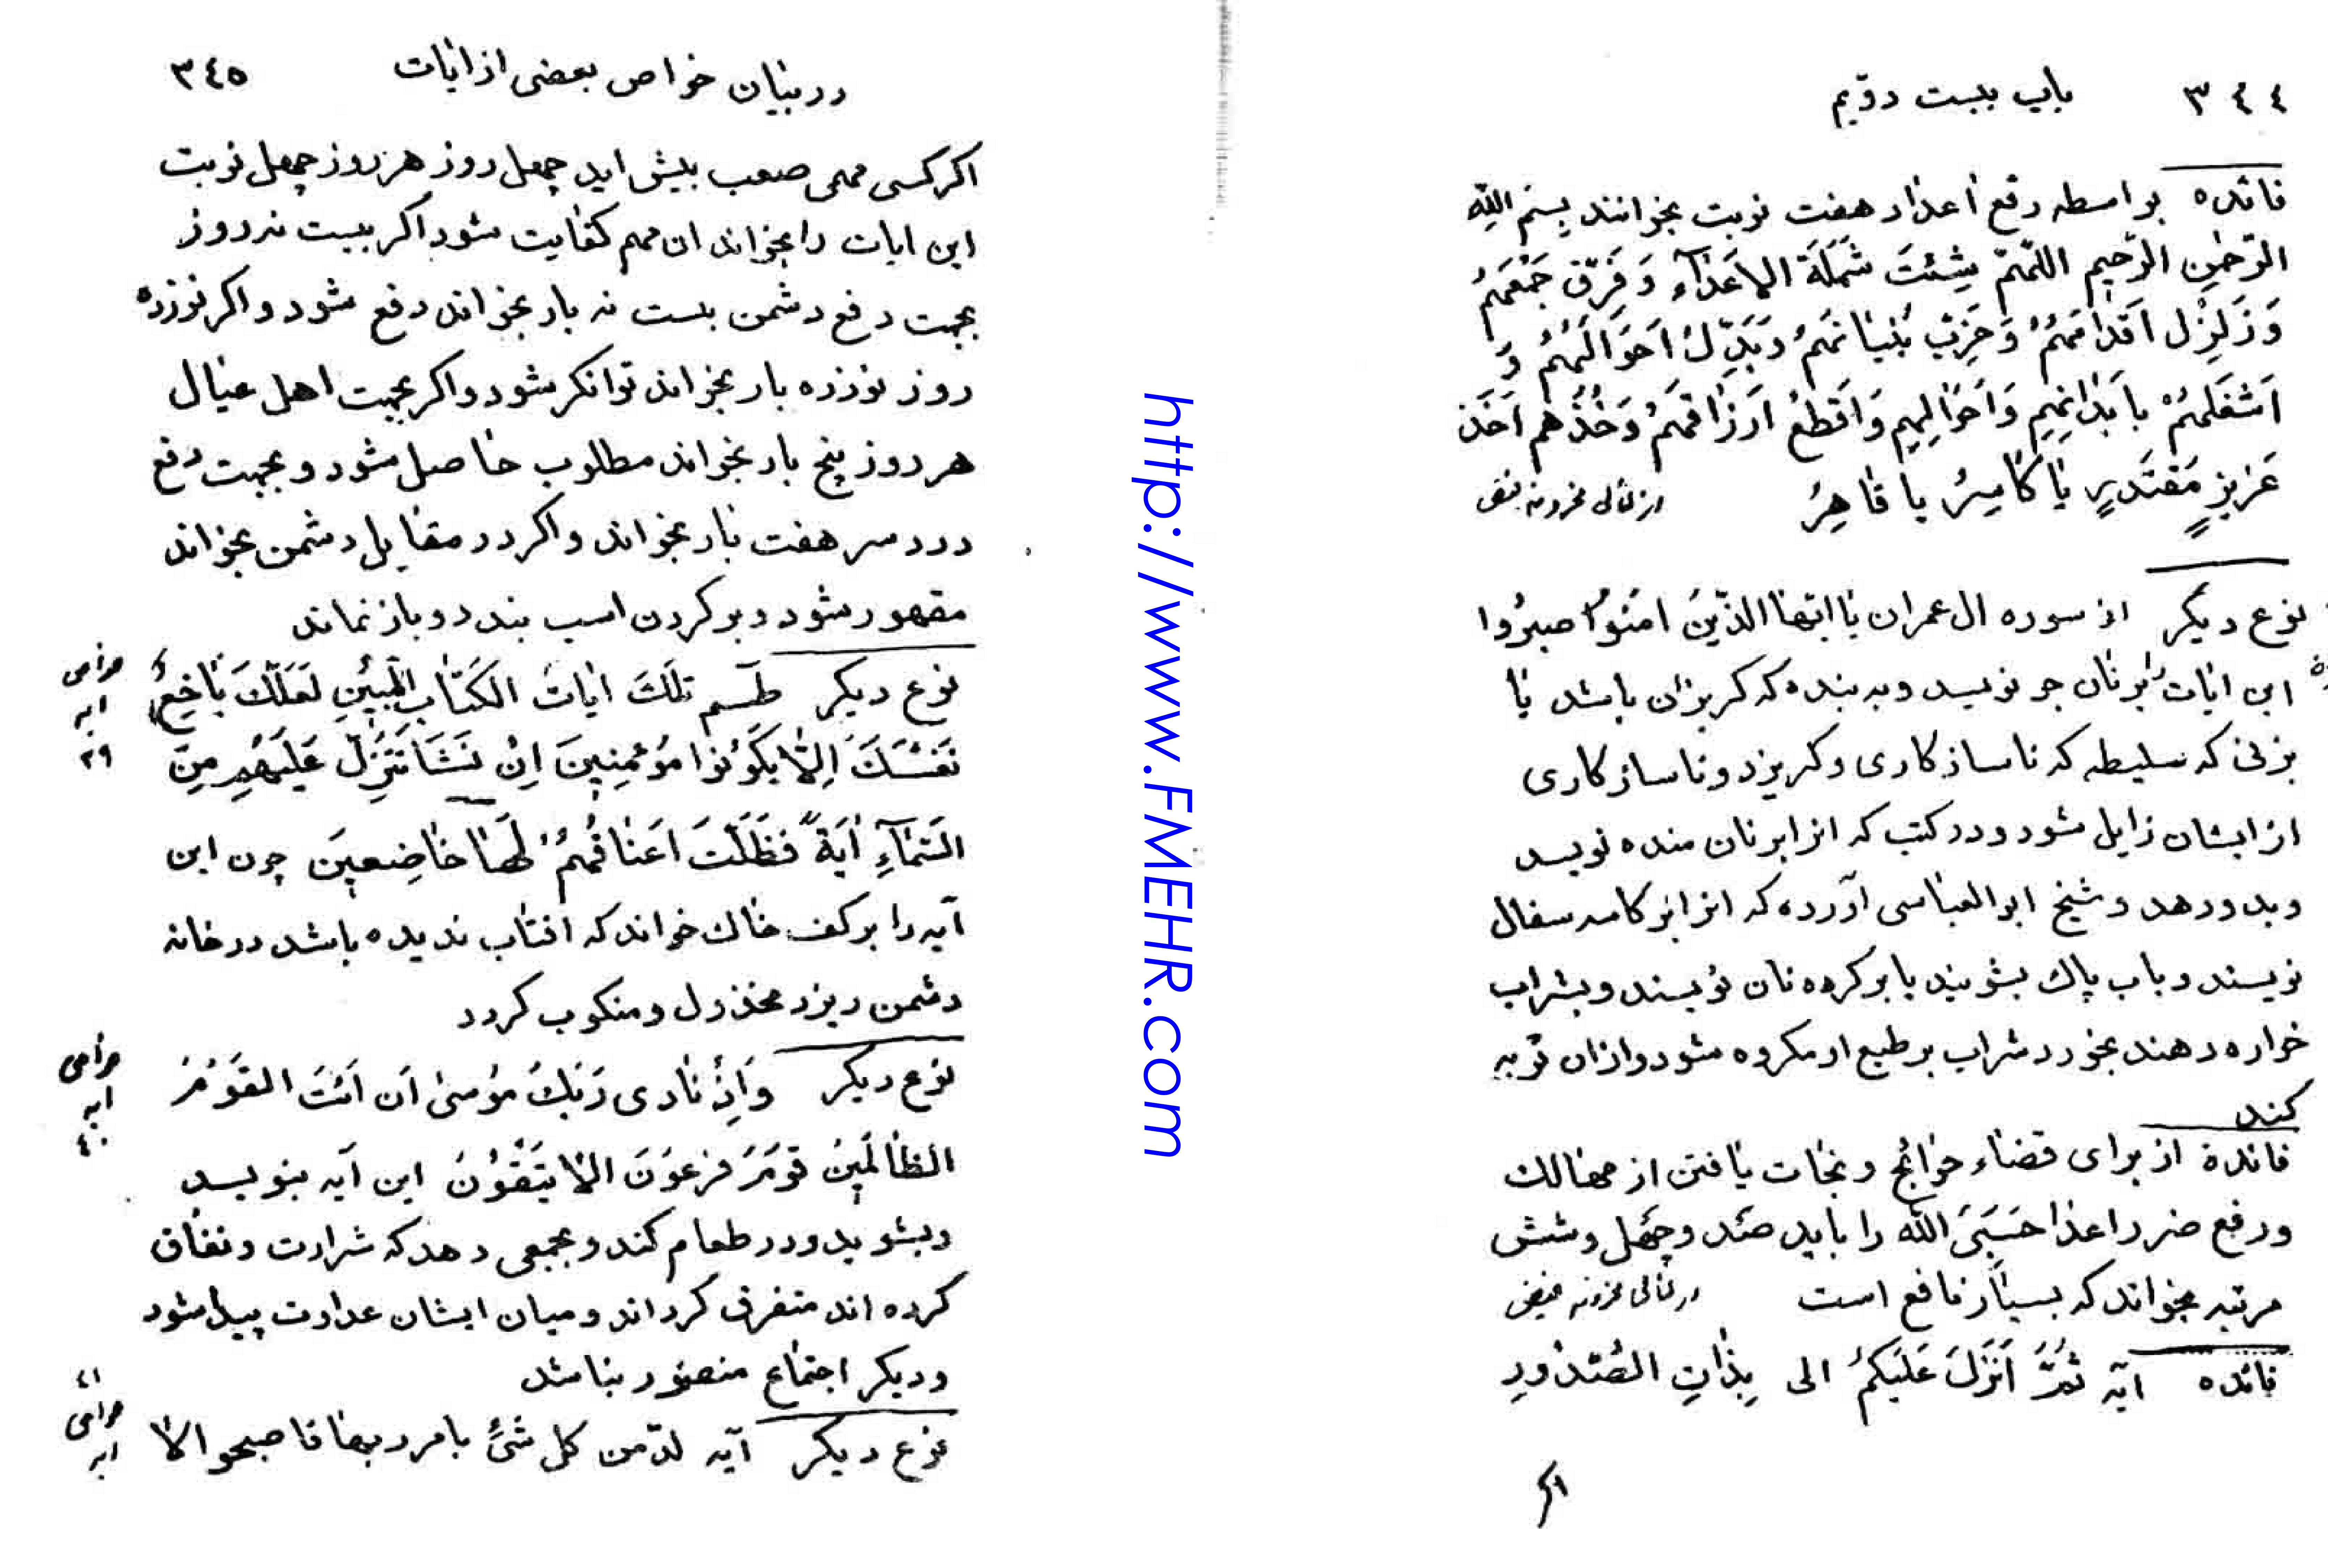 ٣٤٤ باب بیست دویم
فائده بواسطه دفع اعداد هفت نوبت بخوانند بِسْمِ اللهِ
الرَّحْمٰنِ الرَّحیمِ اللّهُمَّ شِئتَ شَملَةَ الاَعدٰآءِ وَ فَرِّق جَمْعَهُم
وَ زَلزِل اَقدٰامَهُم وَ خَرِّب بُنیٰانَهُم وَ بَدِّل اَحوٰالَهُم وَ
اَشغَلهُم بِاَبدٰانِهِم وَ اَحوٰالِهِم وَ اقطَعْ ارزٰاقَهُم وَ خُذهُم اَخذ
عَزیزٍ مُقتَدِرٍ یٰا کٰاسِرُ یا قٰاهِرُ
نوع دیکر از سوره ال عمران یٰا ایّها الذّینَ امَنوُا صبرُوا
این ایٰات برنان جو نویسد و به بنده که کریزان باشد یٰا
بزنی که سلیطه که ناسازکاری و کریزد و ناسازکاری
از ایشان زایل شود و در کتب که انرا برنان منده نویسد
و بدو دهد و شیخ ابوالعباسی آورده که انرا بر کاسه سفال
نویسند و باب پاك بشویند یا بر کرده نان نویسند و بشراب
خواره دهند بخورد شراب بر طبع او مکروه شود و ازان توبه
کند
فائدة از برای قضٰاء حوٰائج و نجٰات یٰافتن از مهٰالك
و رفع ضرر اعدٰا حَسبِیَ اللّه را باید صَد و چهل و شش
مرتبه بخواند که بسیٰار نافع است
فائده ایه ثُمَّ اَنزَلَ عَلَیکُم الی بِذٰاتِ الصُّدُورِ
اکر
در بیٰان خواص بعضی از ایٰات ٣٤٥
اکر کسی مهمی صعب بیش اید چهل روز هر روز چهل نوبت
این ایات را بخواند ان مهم کفایت شود اکر بیست نه روز
بجهت دفع دشمن بست نه بار بخواند دفع شود و اکر نوزده
روز نوزده بار بخواند توانکر شود و اکر بجهت اهل عیٰال
هر روز پنج بار بخواند مطلوب حٰاصل شود و بجهت دفع
درد سر هفت بار بخواند و اکر در مقٰابل دشمن بخواند
مقهور شود و بر کردن اسب بندد و باز نماند
نوع دیکر طسم تلكَ ایٰاتُ الکتٰابِ المُبینِ لَعَلَّكَ بٰاخِعٌ
نَفسَكَ اَلّٰا یَکوُنوا مُؤمِنینَ اِن نَشَا نُنَزِّل عَلَیهِم مِنَ
السَّمٰآءِ اٰیَةً فَظَلَّت اَعنٰاقُهُم لَهٰا خٰاضِعینَ چون این
آیه را بر کف خٰاك خواند که افتٰاب ندیده باشد در خانه
دشمن ریزد مخذول و منکوب کردد
نوع دیکر وَ اِذ نٰادی رَبُّكَ مُوسیٰ اَن ائتَ القَومَ
الظٰالمینَ قَومَ فِرعَونَ الا یَتَّقُونَ این آیه بنویسد
و بشوید و در طعام کند و بجمعی دهد که شرارت و نفٰاق
کرده اند متفرق کرداند و میان ایشان عداوت پیدا شود
و دیکر اجتمٰاع منصور نباشد
نوع دیکر آیه تدمّر کل شئٍ بامر ربهٰا فاصبحوا لا
ایه
٣٩
ایه
٤٠
٤١
ایه
http://www.FMEHR.com